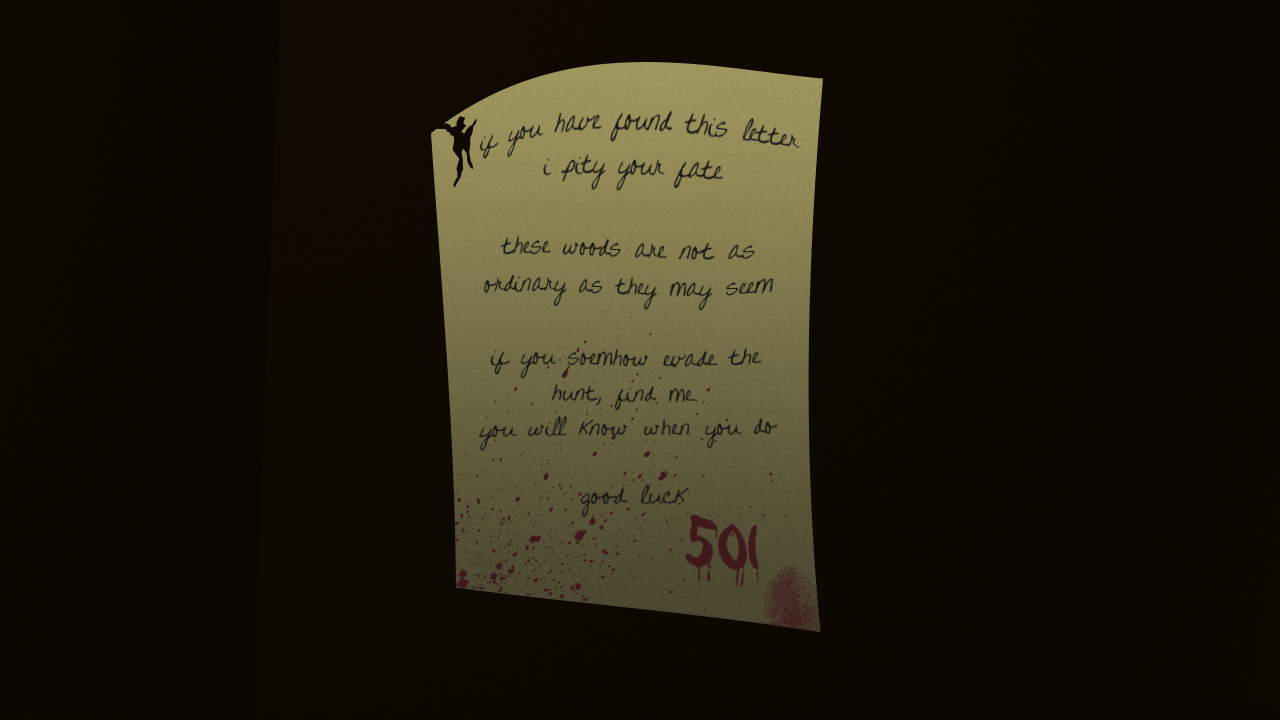 if you have found this letter
i pity your fate
these woods are not as
ordinary as they may seem
if you soemhow evade the
hunt, find me.
you will know when you do
good luck
501